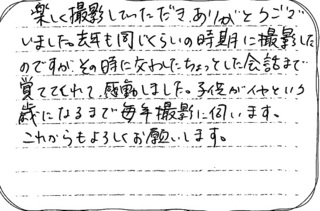 楽しく撮影していただき、ありがとうござ
いました。去年も同じくらいの時期に撮影した
のですが、その時に交わしたちょっとした会話まで
覚えててくれて、感動しました。子供がイヤという
歳になるまで毎年撮影に伺います。
これからもよろしくお願いします。